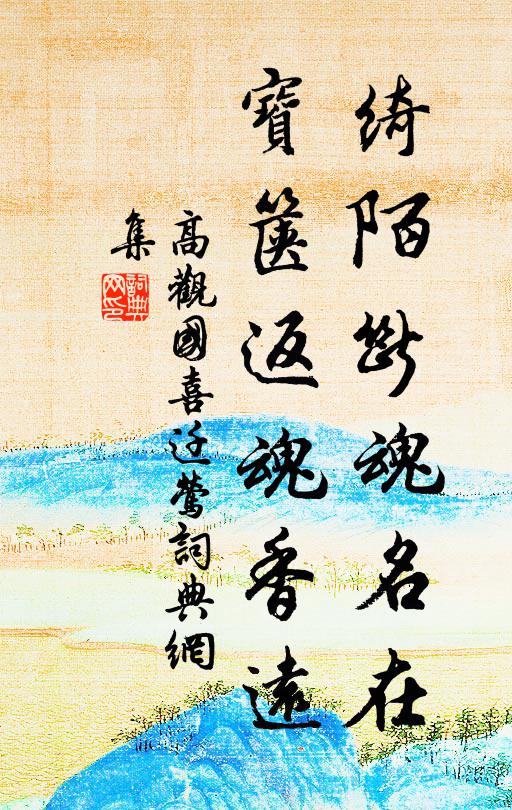 綺陌斷魂名在
寶篋返魂香遠
高觀國喜遷鶯詞典網
集
詞典
网印